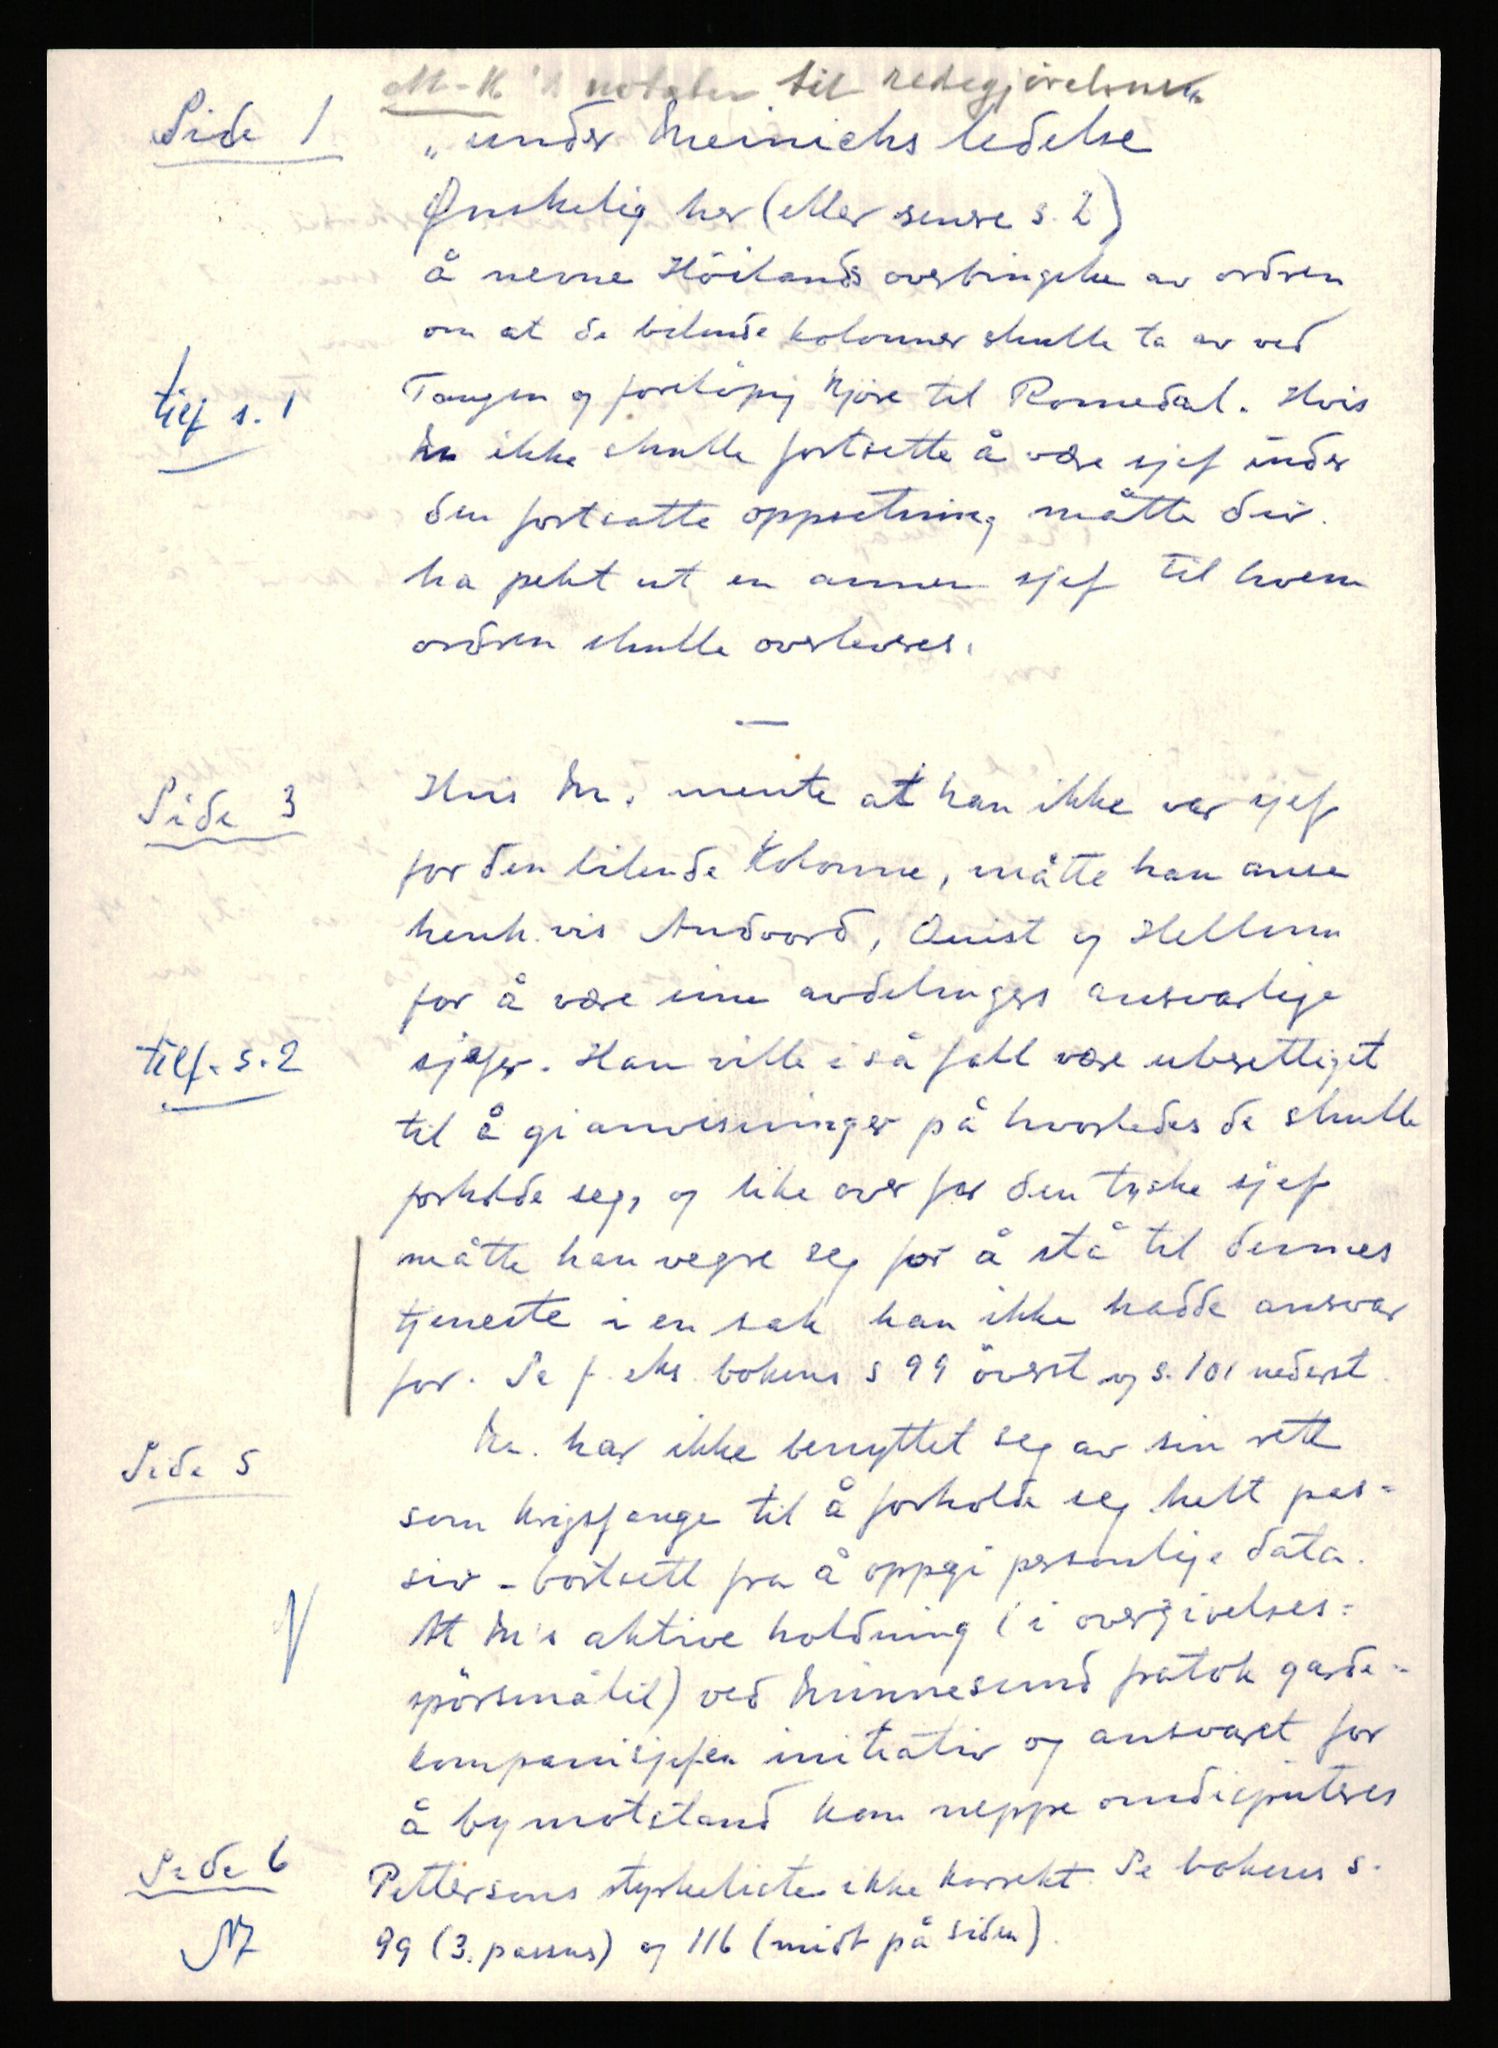 M-K's notater til redegjørelsen
Side 1 „under Meinichs ledelse
Ønskelig her (eller senere s. 2)
å nevne Höilands overbringelse av ordren
om at de bilende kolonner skulle ta av ved
tilf s. 1 Tangen og foreløpig kjøre til Romedal. Hvis
M ikke skulle fortsette å være sjef under
den fortsatte oppsetning måtte div.
ha pekt ut en annen sjef til hvem
ordren skulle overleveres.
—
Side 3 Hvis M. mente at han ikke var sjef
for den bilende kolonne, måtte han anse
henh.vis Andvord, Quist og Hellum
for å være sine avdelingers ansvarlige
tilf. s. 2 sjefer. Han ville i så fall være uberettiget
til å gi anvisninger på hvorledes de skulle
forholde seg, og like over for den tyske sjef
måtte han vegre seg for å stå til dennes
tjeneste i en sak han ikke hadde ansvar
for. Se f. eks. bokens s 99 överst og s. 101 nederst.
Side 5 M. har ikke benyttet seg av sin rett
som krigsfange til å forholde seg helt pas-
siv - bortsett fra å oppgi personlige data.
At M's aktive holdning (i overgivelses-
spörsmålet) ved Minnesund fratok garde-
kompanisjefen initiativ og ansvaret for
å by motstand kan neppe omdisputeres
Side 6 Pettersens styrkelister ikke korrekt. Se bokens s.
99 (3. passus) og 116 (midt på siden).